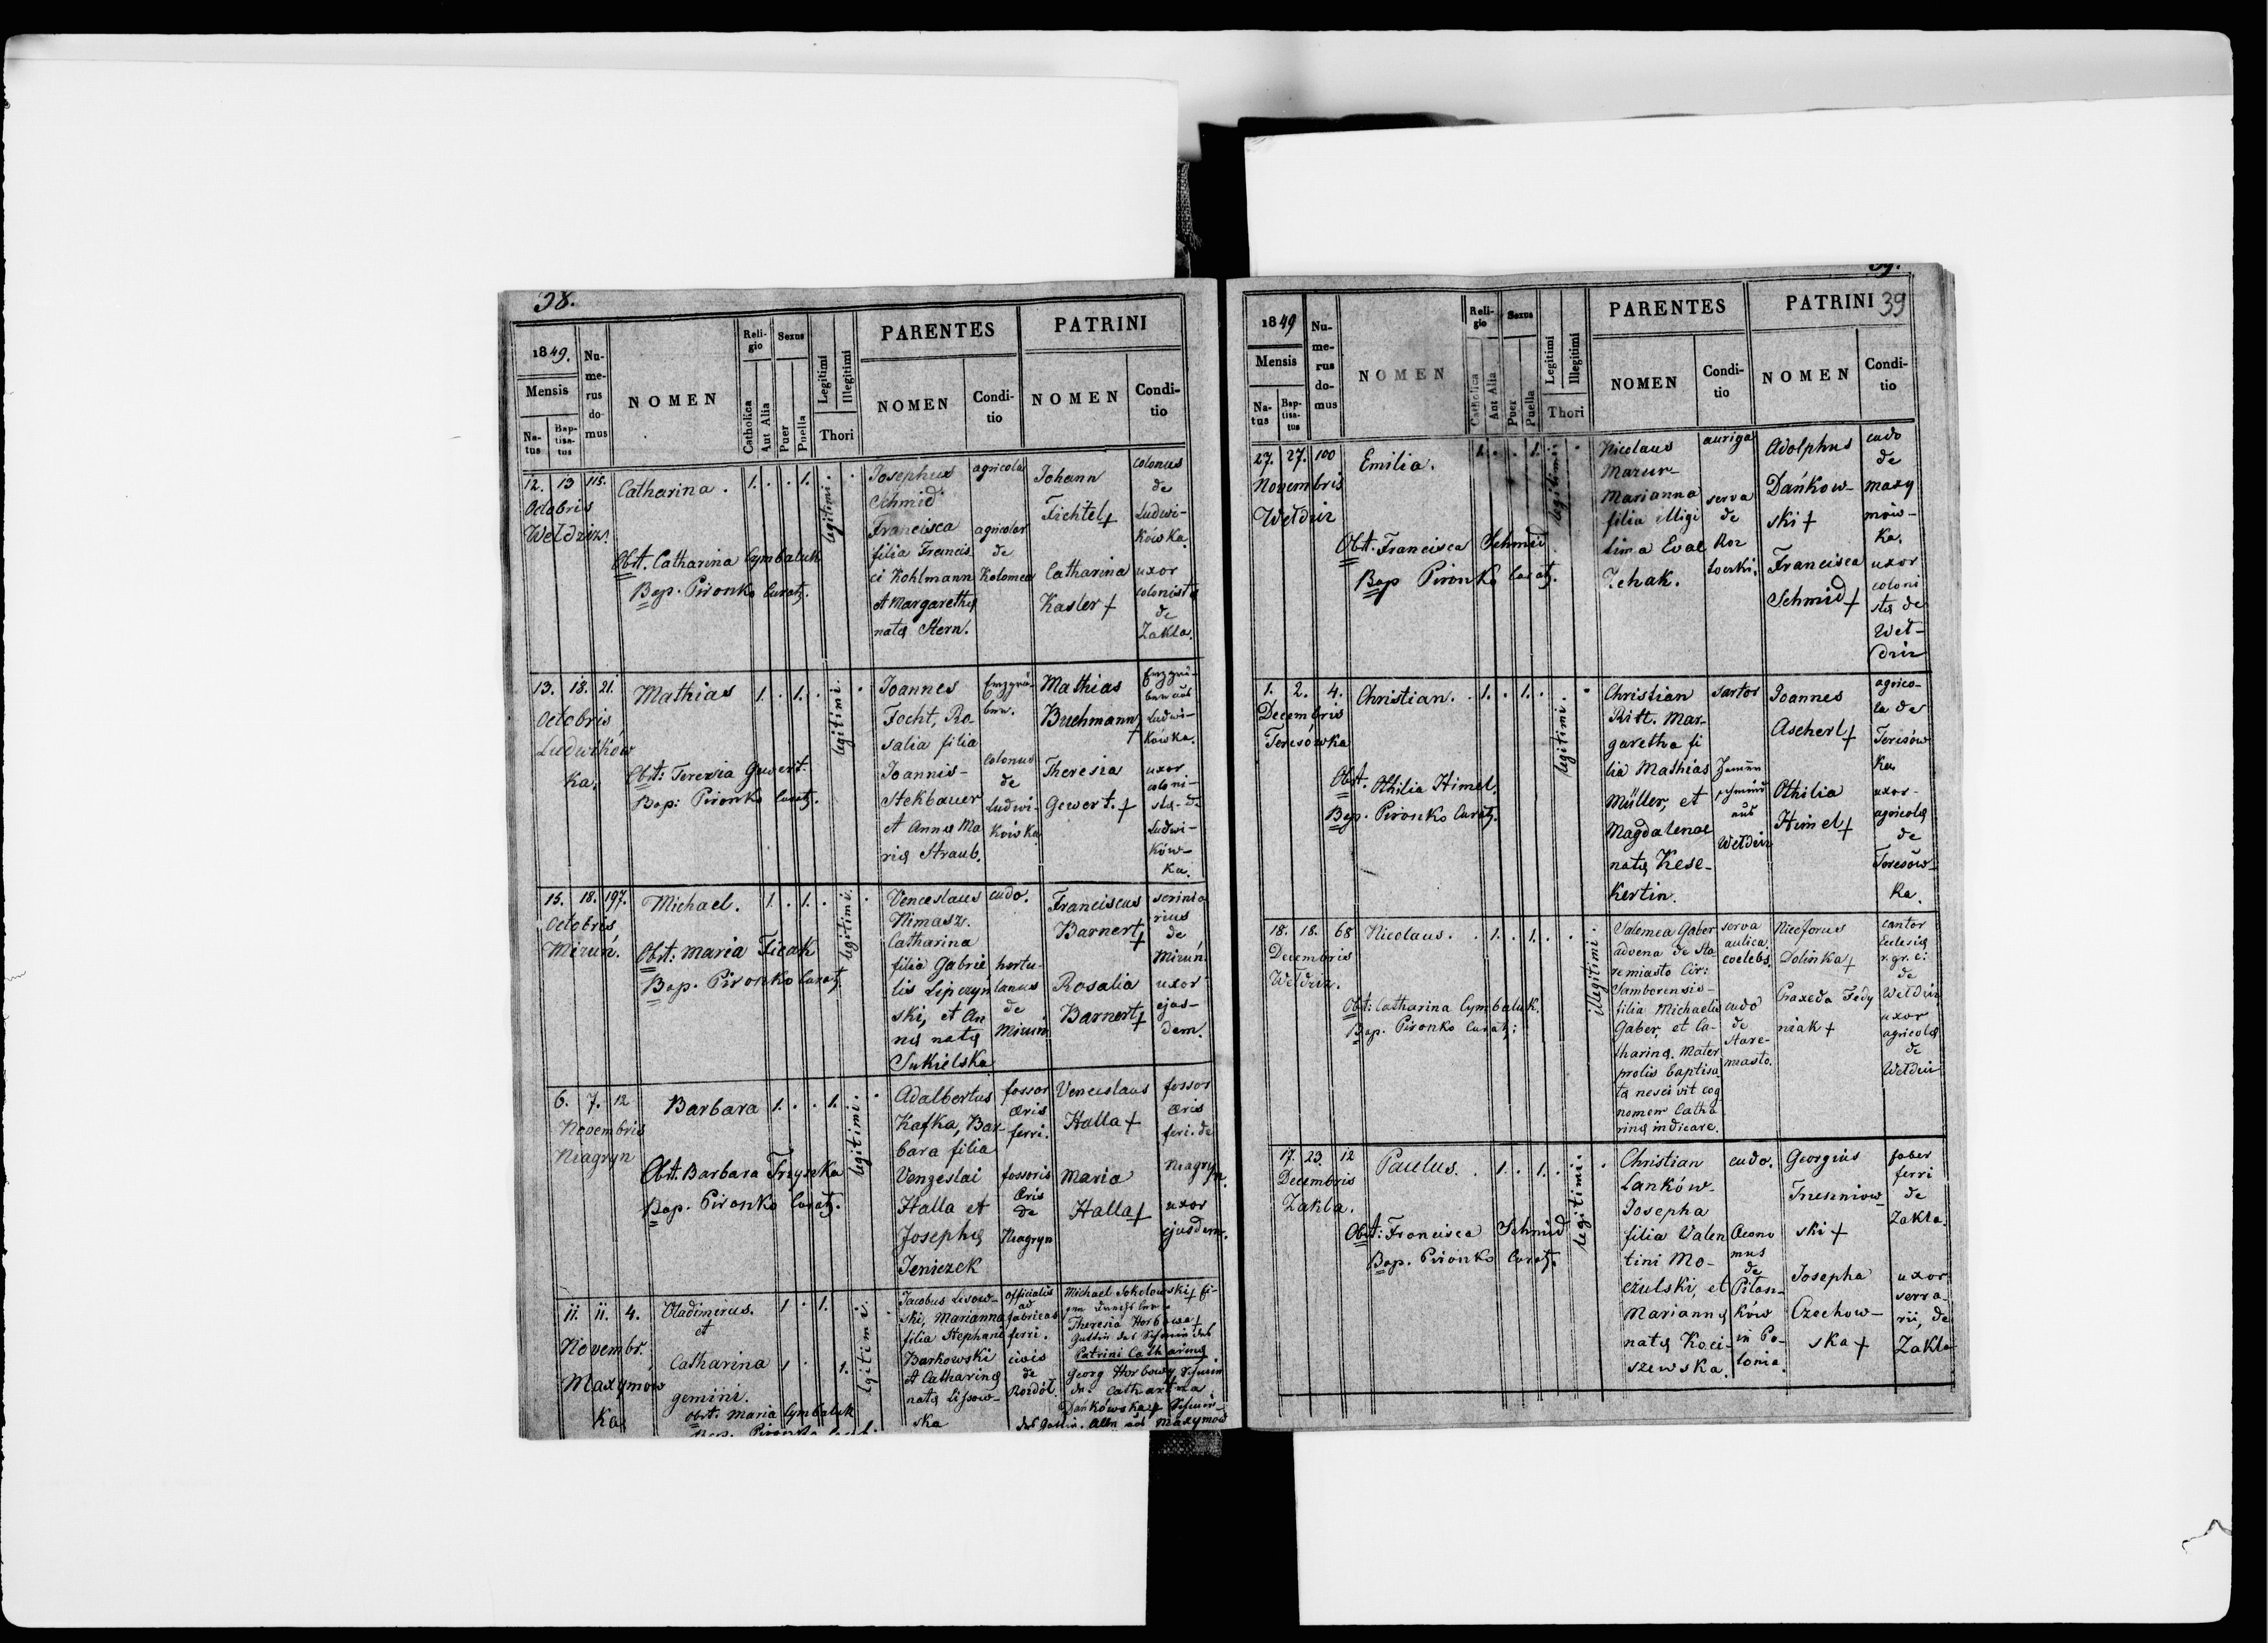 38.
1849.
Mensis
Na-
tus
Bap-
tisa-
tus
Nu-
me-
rus
do-
mus
NOMEN
Reli-
gio
Catholica
Aut Alia
Sexus
Puer
Puella
Legitimi
Illegitimi
Thori
PARENTES
NOMEN
Condi-
tio
PATRINI
NOMEN
Condi-
tio
12. 13 115.
Octobris
Wełdzirz.
Catharina. 1. . . 1.
legitimi.
Obst. Catharina Cymbaluk
Bap. Pironko Curatj.
Josephus
Schmid
Francisca
filia Francis
ci Kohlmann
et Margaretha
nata Stern.
agricola
agricolae
de
Kolomea
Johann
Fichtel +
Catharina
Kasler +
colonus
de
Ludwi-
kówka.
uxor
colonista
de
Zakla.
13. 18. 21.
Octobris
Ludwików
ka.
Mathias 1. . 1. .
legitimi.
Obst: Teresia Gewert.
Bap: Pironko Curatj.
Joannes
Focht, Ro-
salia filia
Joannis-
Stekbauer
et Anna Ma
ria Straub.
colonus
de
Ludwi-
kowka
Mathias
Buchmann
+
Theresia
Gewert. +
Ludwi-
kówka.
uxor
coloni-
sta- de
Ludwi-
ków-
ka.
15. 18. 197.
Octobris
Mizuń.
Michael. 1. . 1. .
legitimi.
Obst: Maria Ficak
Bap. Pironko Curatj
Venceslaus
Nimasz.
Catharina
filia Gabrie
lis Lipczyn
ski, et An
na nata
Sukielska
cudo.
hortu-
lanus
de
Mizuń
Franciscus
Barnert +
Rosalia
Barnert +
scrinia
rius
de
Mizuń.
uxor
ejus-
dem.
6. 7. 12
Novembris
Niagryn
Barbara 1. . . 1.
legitimi.
Obst. Barbara Trzyska
Bap. Pironko Curatj.
Adalbertus
Kafka, Bar-
bara filia
Venzeslai
Halla et
Josepha
Jeniezek
fossor
aeris
ferri.
fossoris
aeris
de
Niagryn
Venceslaus
Halla +
Maria
Halla +
fossor
aeris
feri. de
Niagryn.
uxor
ejusdem.
11. 11. 4.
Novembr.
Maxymow
ka
Vladimirus. 1 . 1.
et
Catharina 1 . 1.
gemini.
legitimi.
Obst: Maria Cymbaluk
Bap. Pironko
Jacobus Lisow-
ski, Marianna
filia Stephani
Barkowski
et Catharina
nata Lissow-
ska
officialis
ad
fabricas
ferri.
civis
de
Rozdół
Michael Sokolowski +
Theresia Horbowa +
Patrini Catharina
Georg Horbowy
Catharina
Dańkowska +
Maxymów
39.
39
1849
Mensis
Na-
tus
Bap-
tisa-
tus
Nu-
me-
rus
do-
mus
NOMEN
Reli-
gio
Catholica
Aut Alia
Sexus
Puer
Puella
Legitimi
Illegitimi
Thori
PARENTES
NOMEN
Condi-
tio
PATRINI
NOMEN
Condi-
tio
27. 27. 100
Novembris
Wełdzirz
Emilia. 1. . . 1.
legitimi.
Obst. Francisca Schmid
Bap Pironko Curatj.
Nicolaus
Mazur-
Marianna
filia illigi
tima Evae
Zehak.
auriga
serva
de
Roz
toczki.
Adolphus
Dańkow-
ski +
Francisca
Schmid +
cudo
de
Maxy
mow-
ka.
uxor
coloni
sta de
Weł-
dzirz
1. 2. 4.
Decembris
Teresówka
Christian. . 1. . 1. .
legitimi.
Obst. Othilia Himel.
Bap. Pironko Curatj.
Christian
Ritt. Mar-
garetha fi
lia Mathias
Müller, et
Magdalenae
nata Kese-
kertin.
sartor
aus
Wełdzirz
Joannes
Ascherl +
Othilia
Himel +
agrico-
la de
Teresów
ka
uxor-
agricola
de
Teresów-
ka.
18. 18. 68
Decembris
Wełdzirz.
Nicolaus. . 1. . 1. .
illegitimi.
Obst: Catharina Cymbaluk.
Bap. Pironko Curatj:
Salomea Gaber
advena de Sta
remiasto Cir:
Samborensis-
filia Michaelis
Gaber, et Ca-
tharina. Mater
prolis baptisa
ta nescivit cog
nomen Catha
rina indicare.
serva
aulica.
coelebs.
cudo
de
Stare-
miasto.
Niceforus
Dolinka +
Praxeda Fedy
niak +
cantor
Eclesia
r. gr. c:
de
Wełdzirz
uxor
agricola
de
Wełdzirz
17. 23. 12
Decembris
Zakla.
Paulus. . 1. . 1. .
legitimi.
Obst: Francisca Schmid
Bap. Pironko Curatj.
Christian
Lanków-
Josepha
filia Valen
tini Mo-
czulski, et
Marianna
nata Koci-
szewska.
cudo.
Oecono
mus
de
Pitan-
ków
in Po-
lonia.
Georgius
ski +
Josepha
Czechow-
ska +
faber
ferri
de
Zakla.
uxor
serra-
rii, de
Zakla